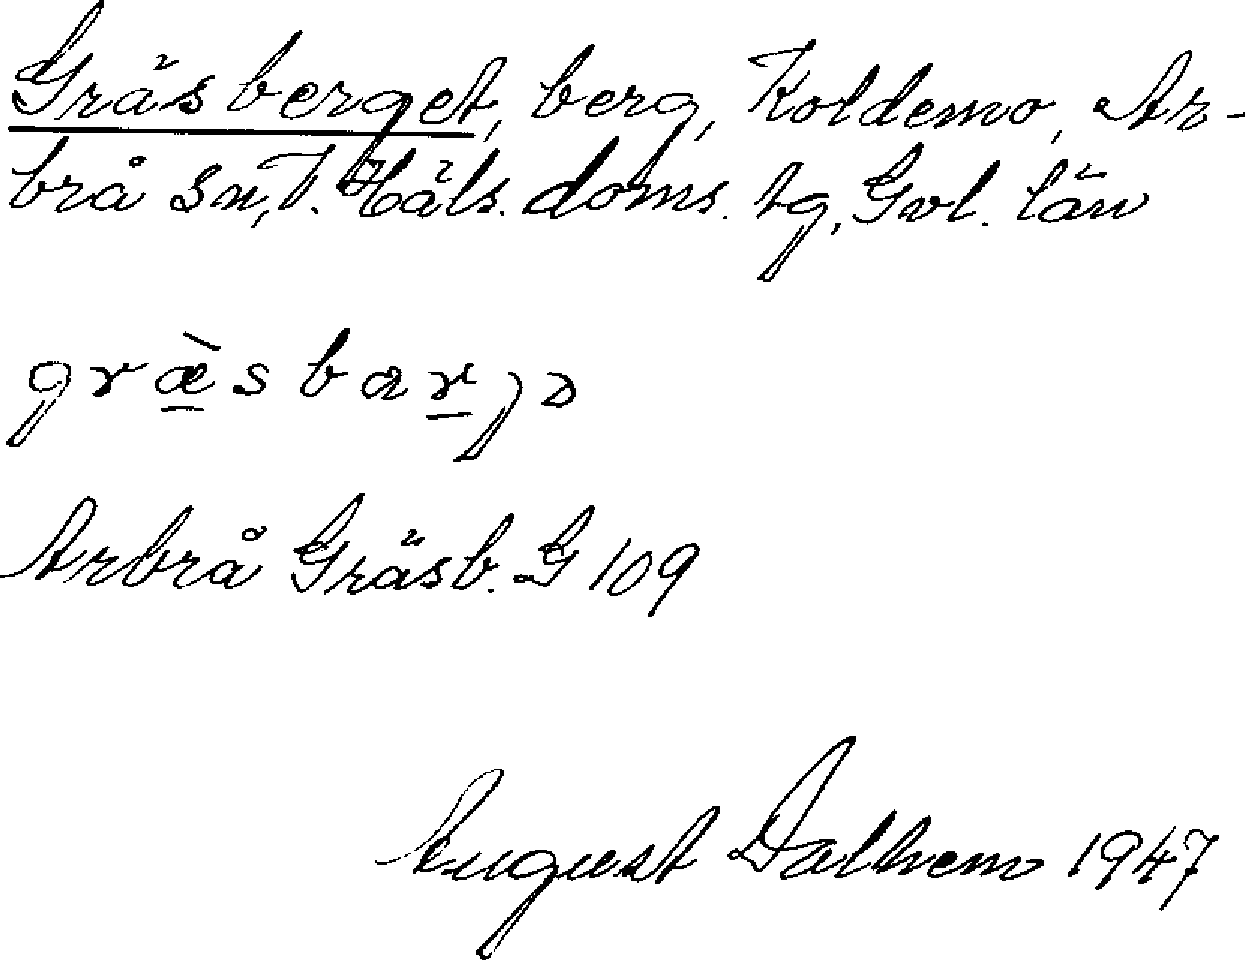 Gräsberget, berg, Koldemo, Ar-
brå sn, V. Häls. doms. tg, Gvl. län
græ̀sbarjə
Arbrå Gräsb. G 109
August Dalhem 1947